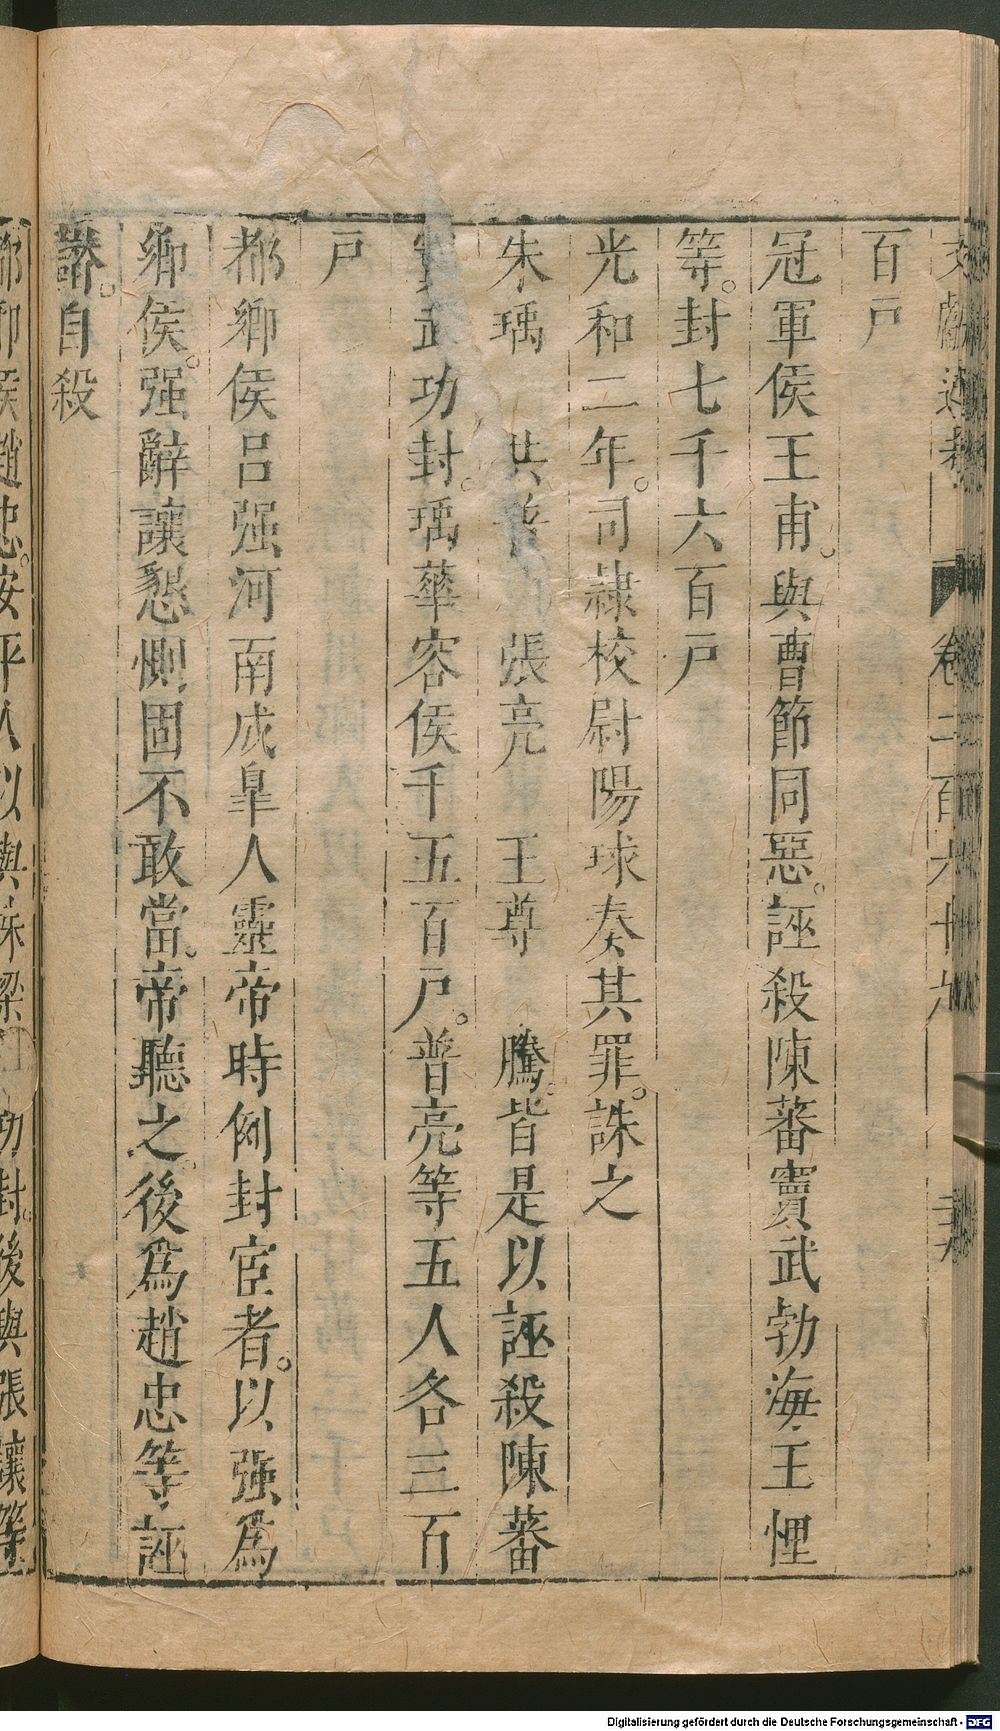 文獻通考 卷二百六十九
百戸
冠軍侯王甫。與曹節同惡。誣殺陳蕃竇武勃海王悝
等。封七千六百戸
光和二年。司隷校尉陽球奏其罪。誅之
朱瑀 共普 張亮 王尊 騰 皆是以誣殺陳蕃
竇武功封。瑀華容侯千五百戸。普亮等五人各三百
戸
都鄉侯呂强河南成皐人靈帝時例封宦者。以强爲
鄉侯。强辭讓懇惻固不敢當。帝聽之後爲趙忠等誣
譖。自殺
都鄉侯趙忠。安平人以與誅梁 功封。後與張讓等
Digitalisierung gefördert durch die Deutsche Forschungsgemeinschaft - DFG